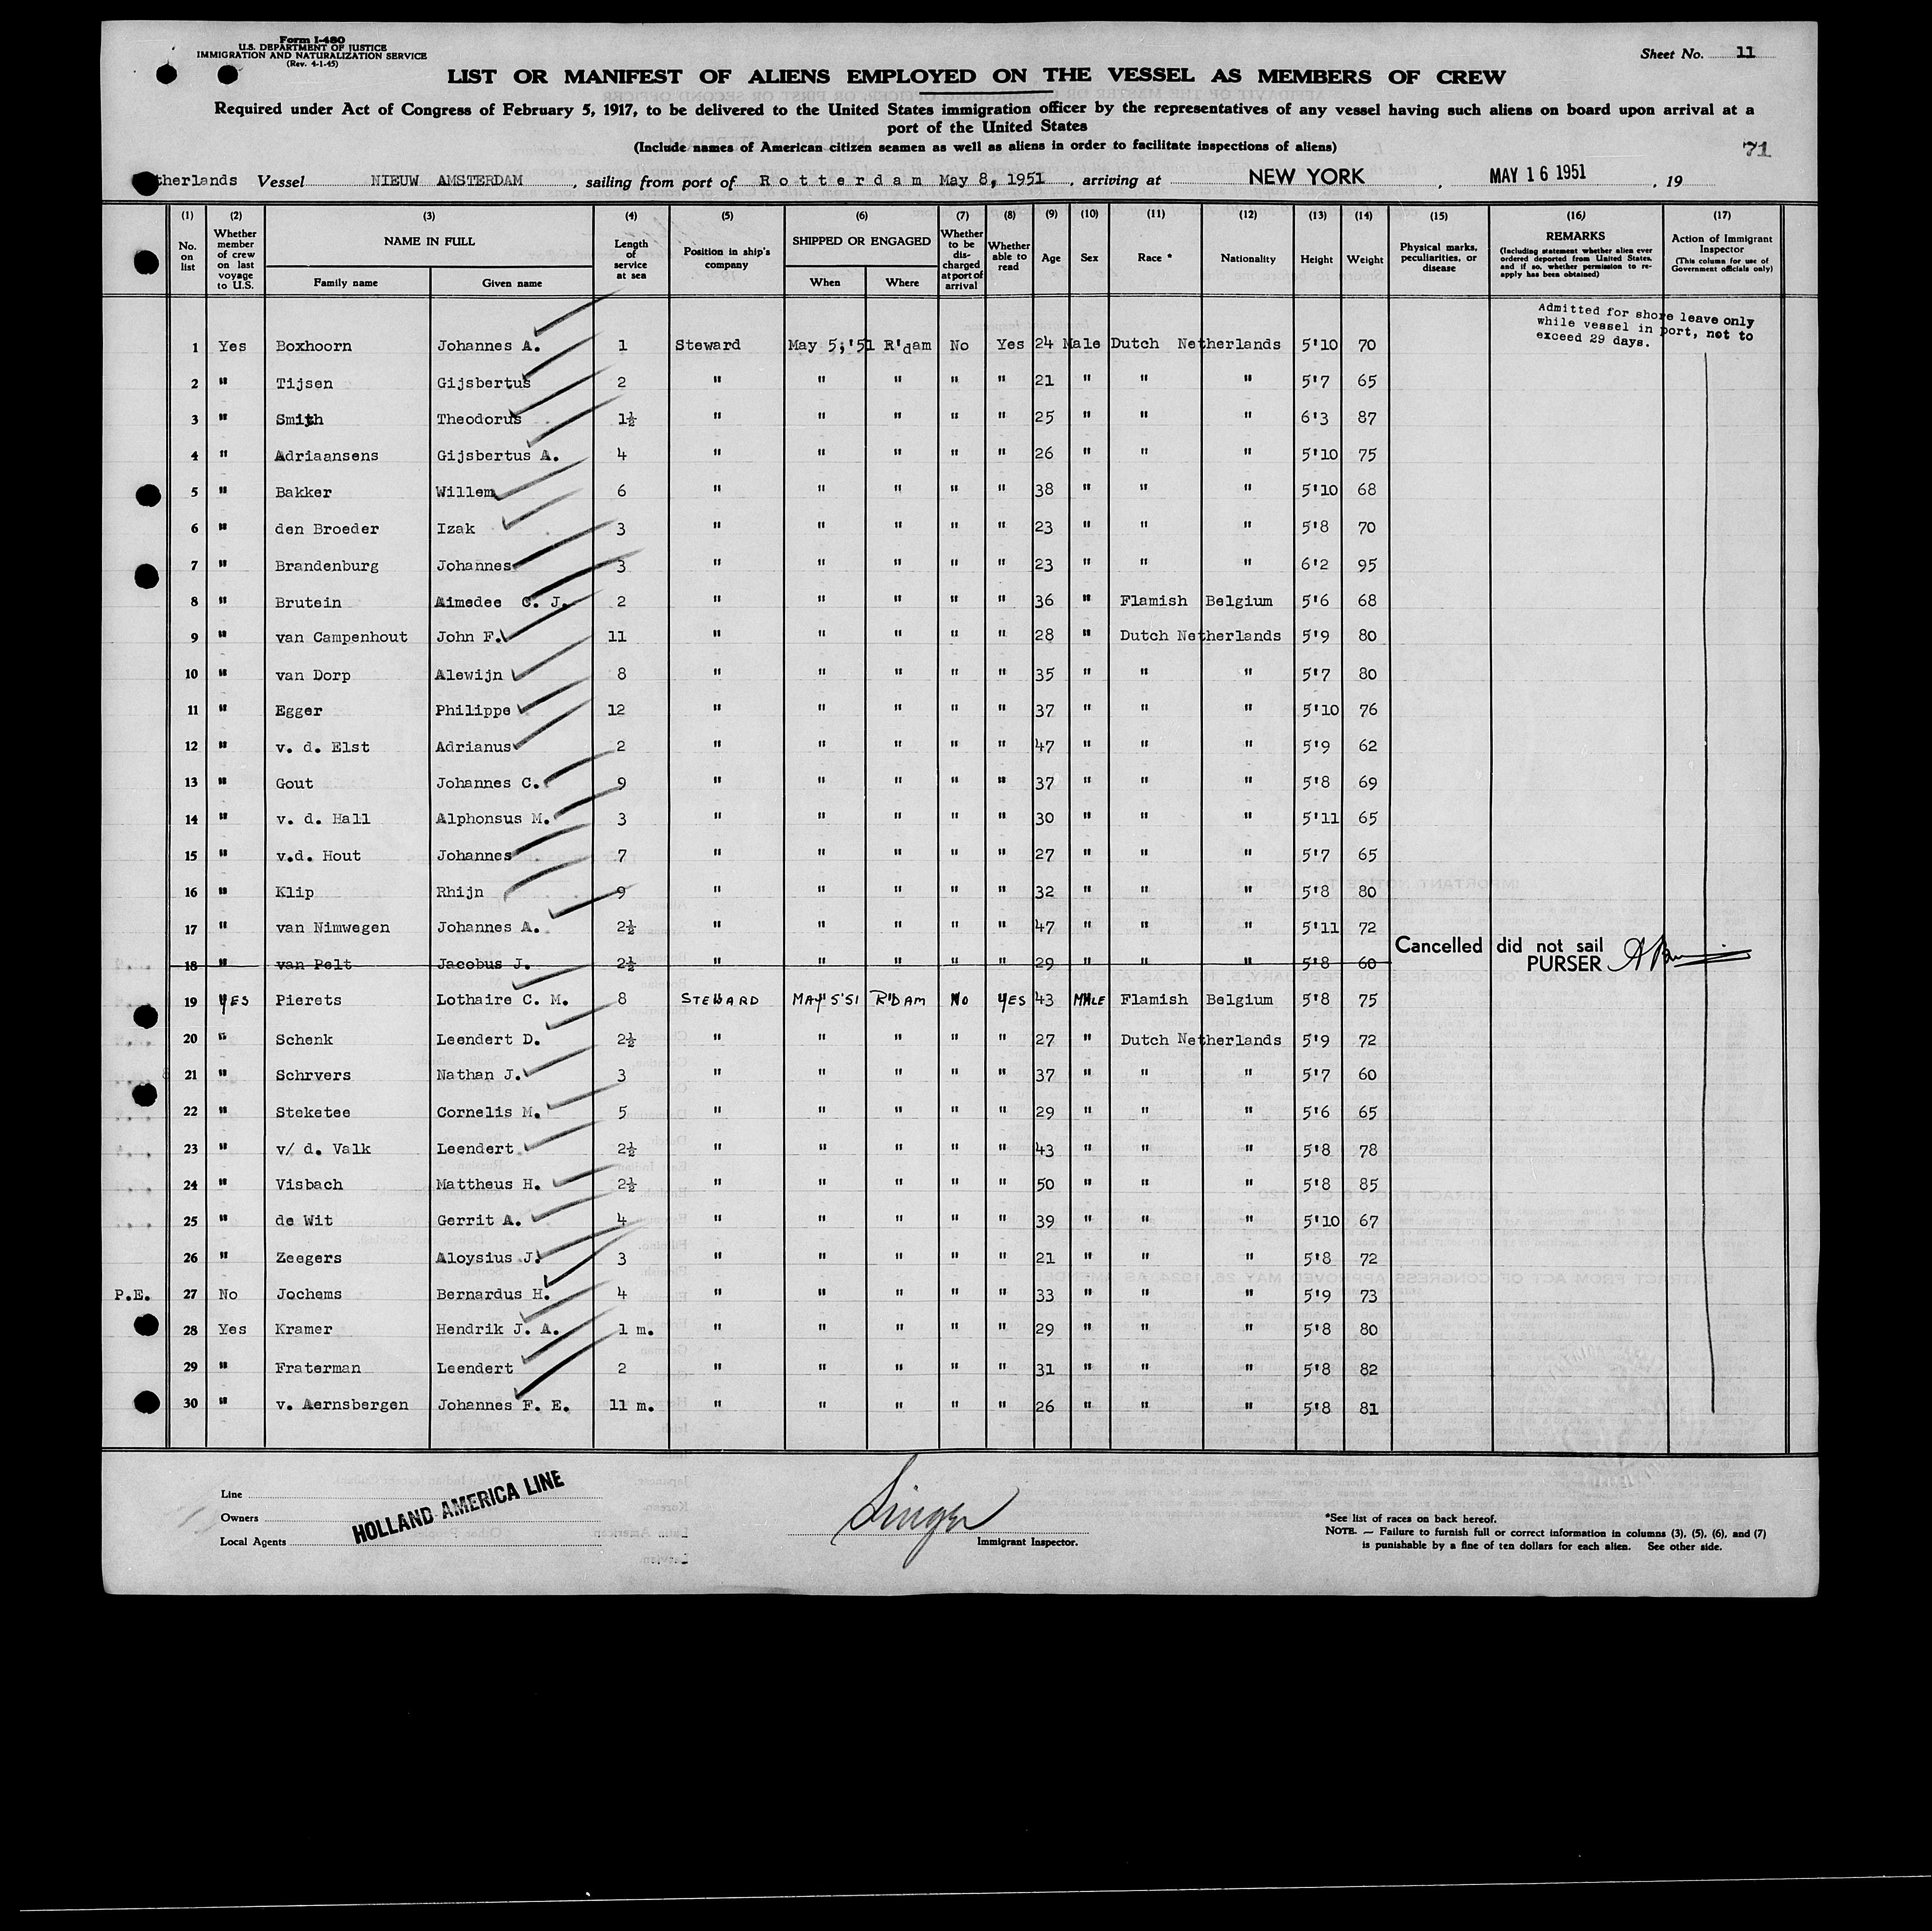 Form I-480
U.S. DEPARTMENT OF JUSTICE
IMMIGRATION AND NATURALIZATION SERVICE
(Rev. 4-1-45)
Sheet No. 11
LIST OR MANIFEST OF ALIENS EMPLOYED ON THE VESSEL AS MEMBERS OF CREW
Required under Act of Congress of February 5, 1917, to be delivered to the United States immigration officer by the representatives of any vessel having such aliens on board upon arrival at a
port of the United States
(Include names of American citizen seamen as well as aliens in order to facilitate inspections of aliens)
71
therlands Vessel NIEUW AMSTERDAM , sailing from port of Rotterdam May 8, 1951 , arriving at NEW YORK , MAY 16 1951 , 19
(1) (2) (3) (4) (5) (6) (7) (8) (9) (10) (11) (12) (13) (14) (15) (16) (17)
No. on list Whether member of crew on last voyage to U.S. NAME IN FULL Family name Given name Length of service at sea Position in ship's company SHIPPED OR ENGAGED When Where Whether to be discharged at port of arrival Whether able to read Age Sex Race * Nationality Height Weight Physical marks, peculiarities, or disease REMARKS (Including statement whether alien ever ordered deported from United States, and if so, whether permission to reapply has been obtained) Action of Immigrant Inspector (This column for use of Government officials only)
Admitted for shore leave only
while vessel in port, not to
exceed 29 days.
1 Yes Boxhoorn Johannes A. 1 Steward May 5,'51 R'dam No Yes 24 Male Dutch Netherlands 5'10 70
2 " Tijsen Gijsbertus 2 " " " " " 21 " " " 5'7 65
3 " Smith Theodorus 1½ " " " " " 25 " " " 6'3 87
4 " Adriaansens Gijsbertus A. 4 " " " " " 26 " " " 5'10 75
5 " Bakker Willem 6 " " " " " 38 " " " 5'10 68
6 " den Broeder Izak 3 " " " " " 23 " " " 5'8 70
7 " Brandenburg Johannes 3 " " " " " 23 " " " 6'2 95
8 " Brutein Aimedee C. J. 2 " " " " " 36 " Flamish Belgium 5'6 68
9 " van Campenhout John F. 11 " " " " " 28 " Dutch Netherlands 5'9 80
10 " van Dorp Alewijn 8 " " " " " 35 " " " 5'7 80
11 " Egger Philippe 12 " " " " " 37 " " " 5'10 76
12 " v. d. Elst Adrianus 2 " " " " " 47 " " " 5'9 62
13 " Gout Johannes C. 9 " " " " " 37 " " " 5'8 69
14 " v. d. Hall Alphonsus M. 3 " " " " " 30 " " " 5'11 65
15 " v.d. Hout Johannes 7 " " " " " 27 " " " 5'7 65
16 " Klip Rhijn 9 " " " " " 32 " " " 5'8 80
17 " van Nimwegen Johannes A. 2½ " " " " " 47 " " " 5'11 72
18 " van Pelt Jacobus J. 2½ " " " " " 29 " " " 5'8 60 Cancelled did not sail
PURSER
19 YES Pierets Lothaire C. M. 8 STEWARD MAY 5'51 R'DAM NO YES 43 MALE Flamish Belgium 5'8 75
20 " Schenk Leendert D. 2½ " " " " " 27 " Dutch Netherlands 5'9 72
21 " Schrvers Nathan J. 3 " " " " " 37 " " " 5'7 60
22 " Steketee Cornelis M. 5 " " " " " 29 " " " 5'6 65
23 " v/ d. Valk Leendert 2½ " " " " " 43 " " " 5'8 78
24 " Visbach Mattheus H. 2½ " " " " " 50 " " " 5'8 85
25 " de Wit Gerrit A. 4 " " " " " 39 " " " 5'10 67
26 " Zeegers Aloysius J. 3 " " " " " 21 " " " 5'8 72
P.E. 27 No Jochems Bernardus H. 4 " " " " " 33 " " " 5'9 73
28 Yes Kramer Hendrik J. A. 1 m. " " " " " 29 " " " 5'8 80
29 " Fraterman Leendert 2 " " " " " 31 " " " 5'8 82
30 " v. Aernsbergen Johannes F. E. 11 m. " " " " " 26 " " " 5'8 81
Line
Owners
Local Agents
HOLLAND AMERICA LINE
Singer
Immigrant Inspector.
*See list of races on back hereof.
NOTE. — Failure to furnish full or correct information in columns (3), (5), (6), and (7)
is punishable by a fine of ten dollars for each alien. See other side.